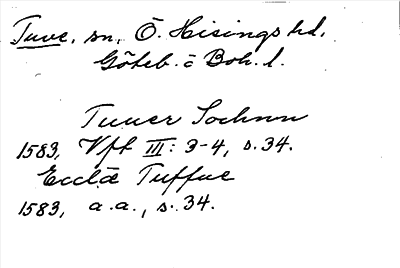 Tuve, sn, Ö. Hisings hd,
Göteb. o Boh. l.
Tuuer Sochnn
1583, Vft III: 3-4, s. 34.
Ecclæ Tuffue
1583, a.a., s. 34.